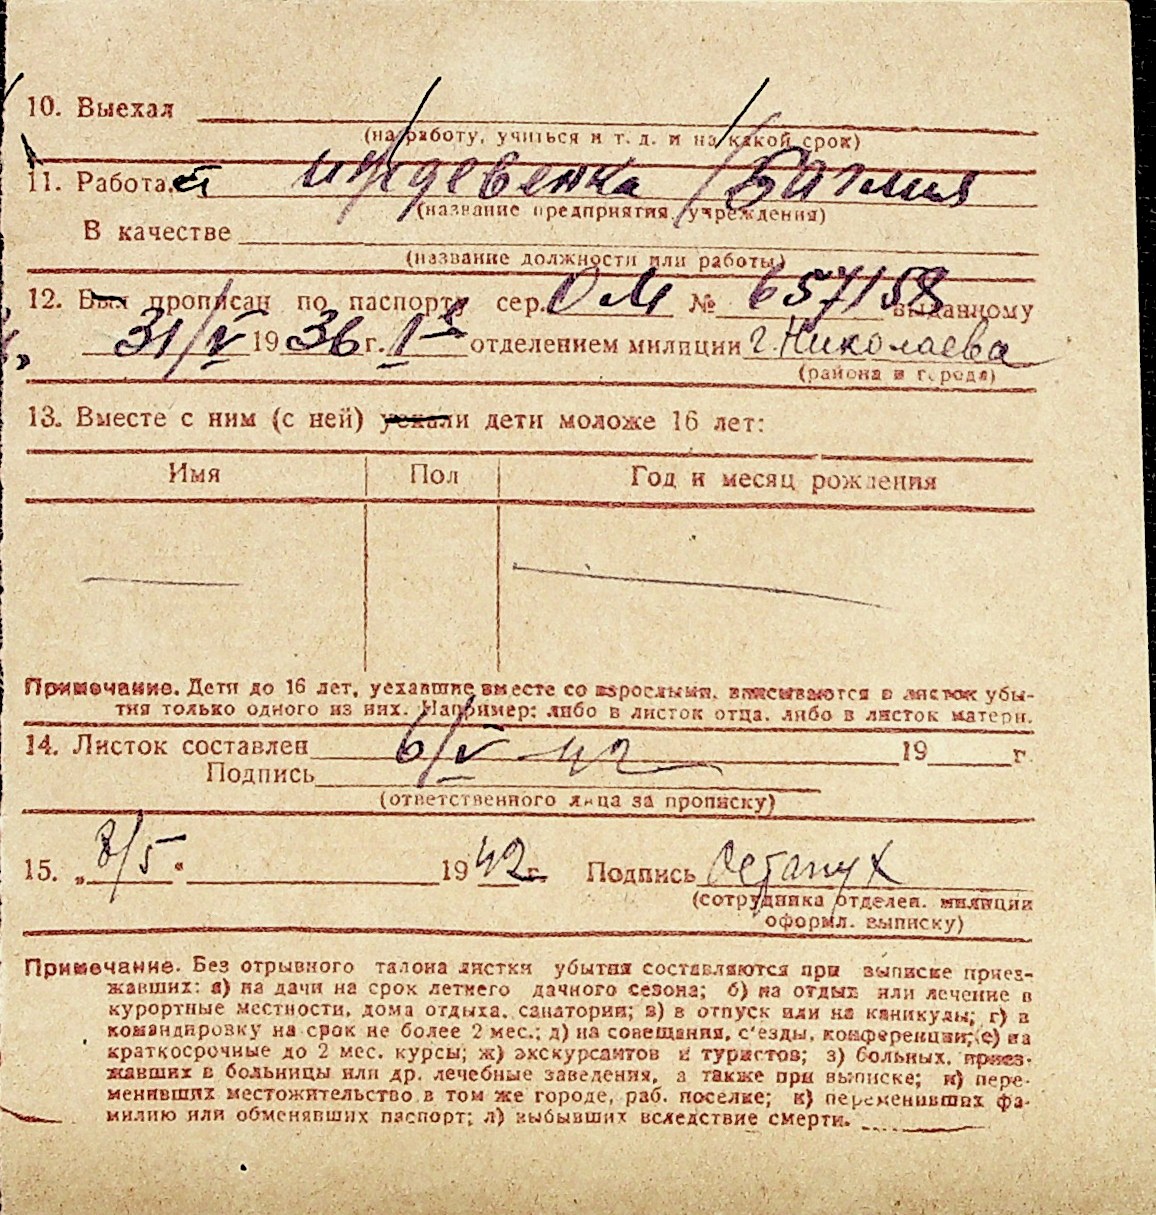 10. Выехал
(на работу, учиться и т. д. и на какой срок)
11. Работает иждевенка
(название предприятия, учреждения)
В качестве
(название должности или работы)
12. Был прописан по паспорту сер. ОМ № 657158 выданному
31/V 1936 г. 1 отделением милиции г. Николаева
(района и города)
13. Вместе с ним (с ней) уехали дети моложе 16 лет:
Имя Пол Год и месяц рождения
Примечание. Дети до 16 лет, уехавшие вместе со взрослыми, вписываются в листок убы-
тия только одного из них. Например: либо в листок отца, либо в листок матери.
14. Листок составлен 6/V 42 19 г.
Подпись
(ответственного лица за прописку)
15. „8/5" 1942 г. Подпись
(сотрудника отделен. милиции
оформл. выписку)
Примечание. Без отрывного талона листки убытия составляются при выписке приез-
жавших: а) на дачи на срок летнего дачного сезона; б) на отдых или лечение в
курортные местности, дома отдыха, санатории; в) в отпуск или на каникулы; г) в
командировку на срок не более 2 мес.; д) на совещания, с'езды, конференции; е) на
краткосрочные до 2 мес. курсы; ж) экскурсантов и туристов; з) больных, приез-
жавших в больницы или др. лечебные заведения, а также при выписке; и) пере-
менивших местожительство в том же городе, раб. поселке; к) переменивших фа-
милию или обменявших паспорт; л) выбывших вследствие смерти.